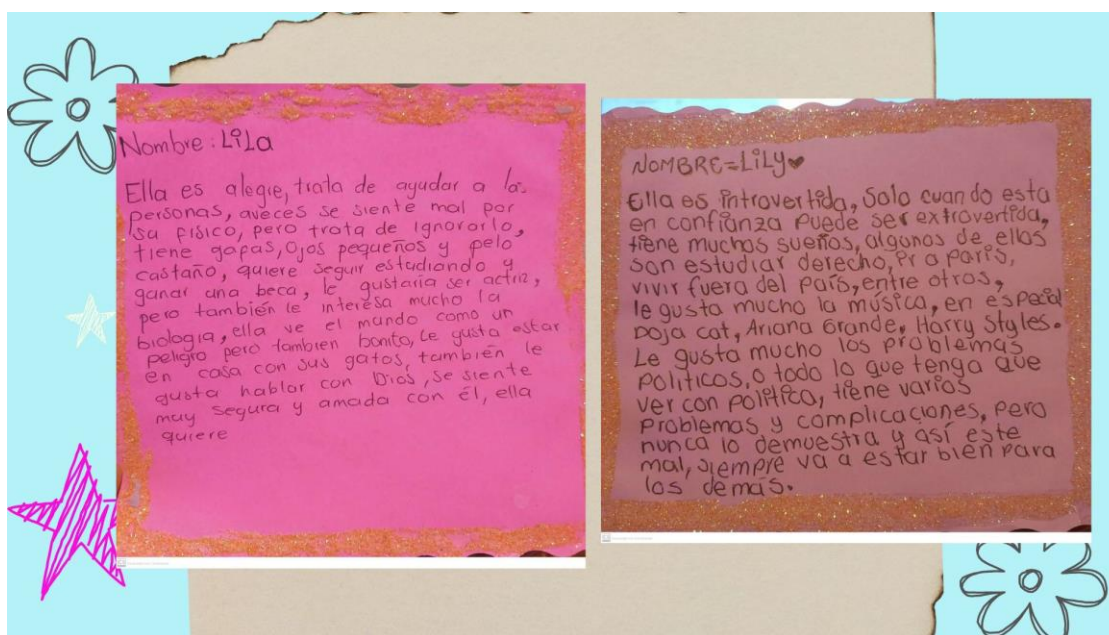 Nombre: LiLa
Ella es alegre, trata de ayudar a las
personas, aveces se siente mal por
su físico, pero trata de ignorarlo,
tiene gafas, Ojos pequeños y pelo
castaño, quiere seguir estudiando y
ganar una beca, le gustaría ser actriz,
pero también le interesa mucho la
biologia, ella ve el mundo como un
peligro pero tambien bonito, Le gusta estar
en casa con sus gatos, también le
gusta hablar con Dios, se siente
muy segura y amada con él, ella
quiere
NOMBRE=LiLy♥
Ella es introvertida, Solo cuando esta
en confianza Puede ser extrovertida,
tiene muchos sueños, algunos de ellos
son estudiar derecho, ir a parís,
vivir fuera del País, entre otros,
le gusta mucho la música, en especial
Doja cat, Ariana Grande, Harry Styles.
Le gusta mucho los problemas
Politicos, o todo lo que tenga que
ver con politico, tiene varios
problemas y complicaciones, pero
nunca lo demuestra y así este
mal, siempre va a estar bien para
los demás.